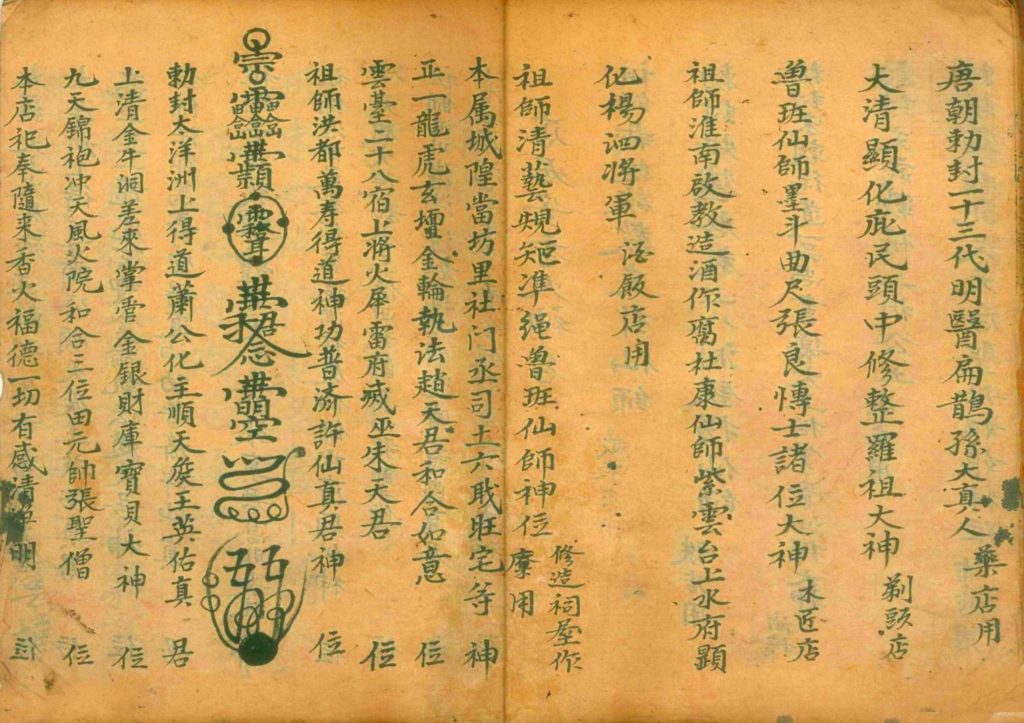 唐朝勅封一十三代明醫扁鵲孫大真人 藥店用
大清顯化庇民頭中修整羅祖大神 剃頭店
魯班仙師墨斗曲尺張良慱士諸位大神 木匠店
祖師淮南啟教造酒作腐杜康仙師紫雲台上水府顕
化楊泗將軍 酒飯店用
祖師清藝規矩準绳魯班仙師神位 修造祠屋作 用
本属城隍當坊里社门丞司土六戝旺宅等 神
正一龍虎玄壇金輪執法趙天君和合如意 位
雲臺二十八宿上將火犀雷府 巫朱天君 位
祖師洪都萬寿得道神功普濟許仙真君神 位
勅封太洋洲上得道蕭公化主順天矦王英佑真 君
上清金牛洞差來掌管金銀財庫寶貝大神 位
九天錦袍冲天風火院和合三位田元帥張聖僧 位
本店祀奉隨来香火福德一切有感清 明 位